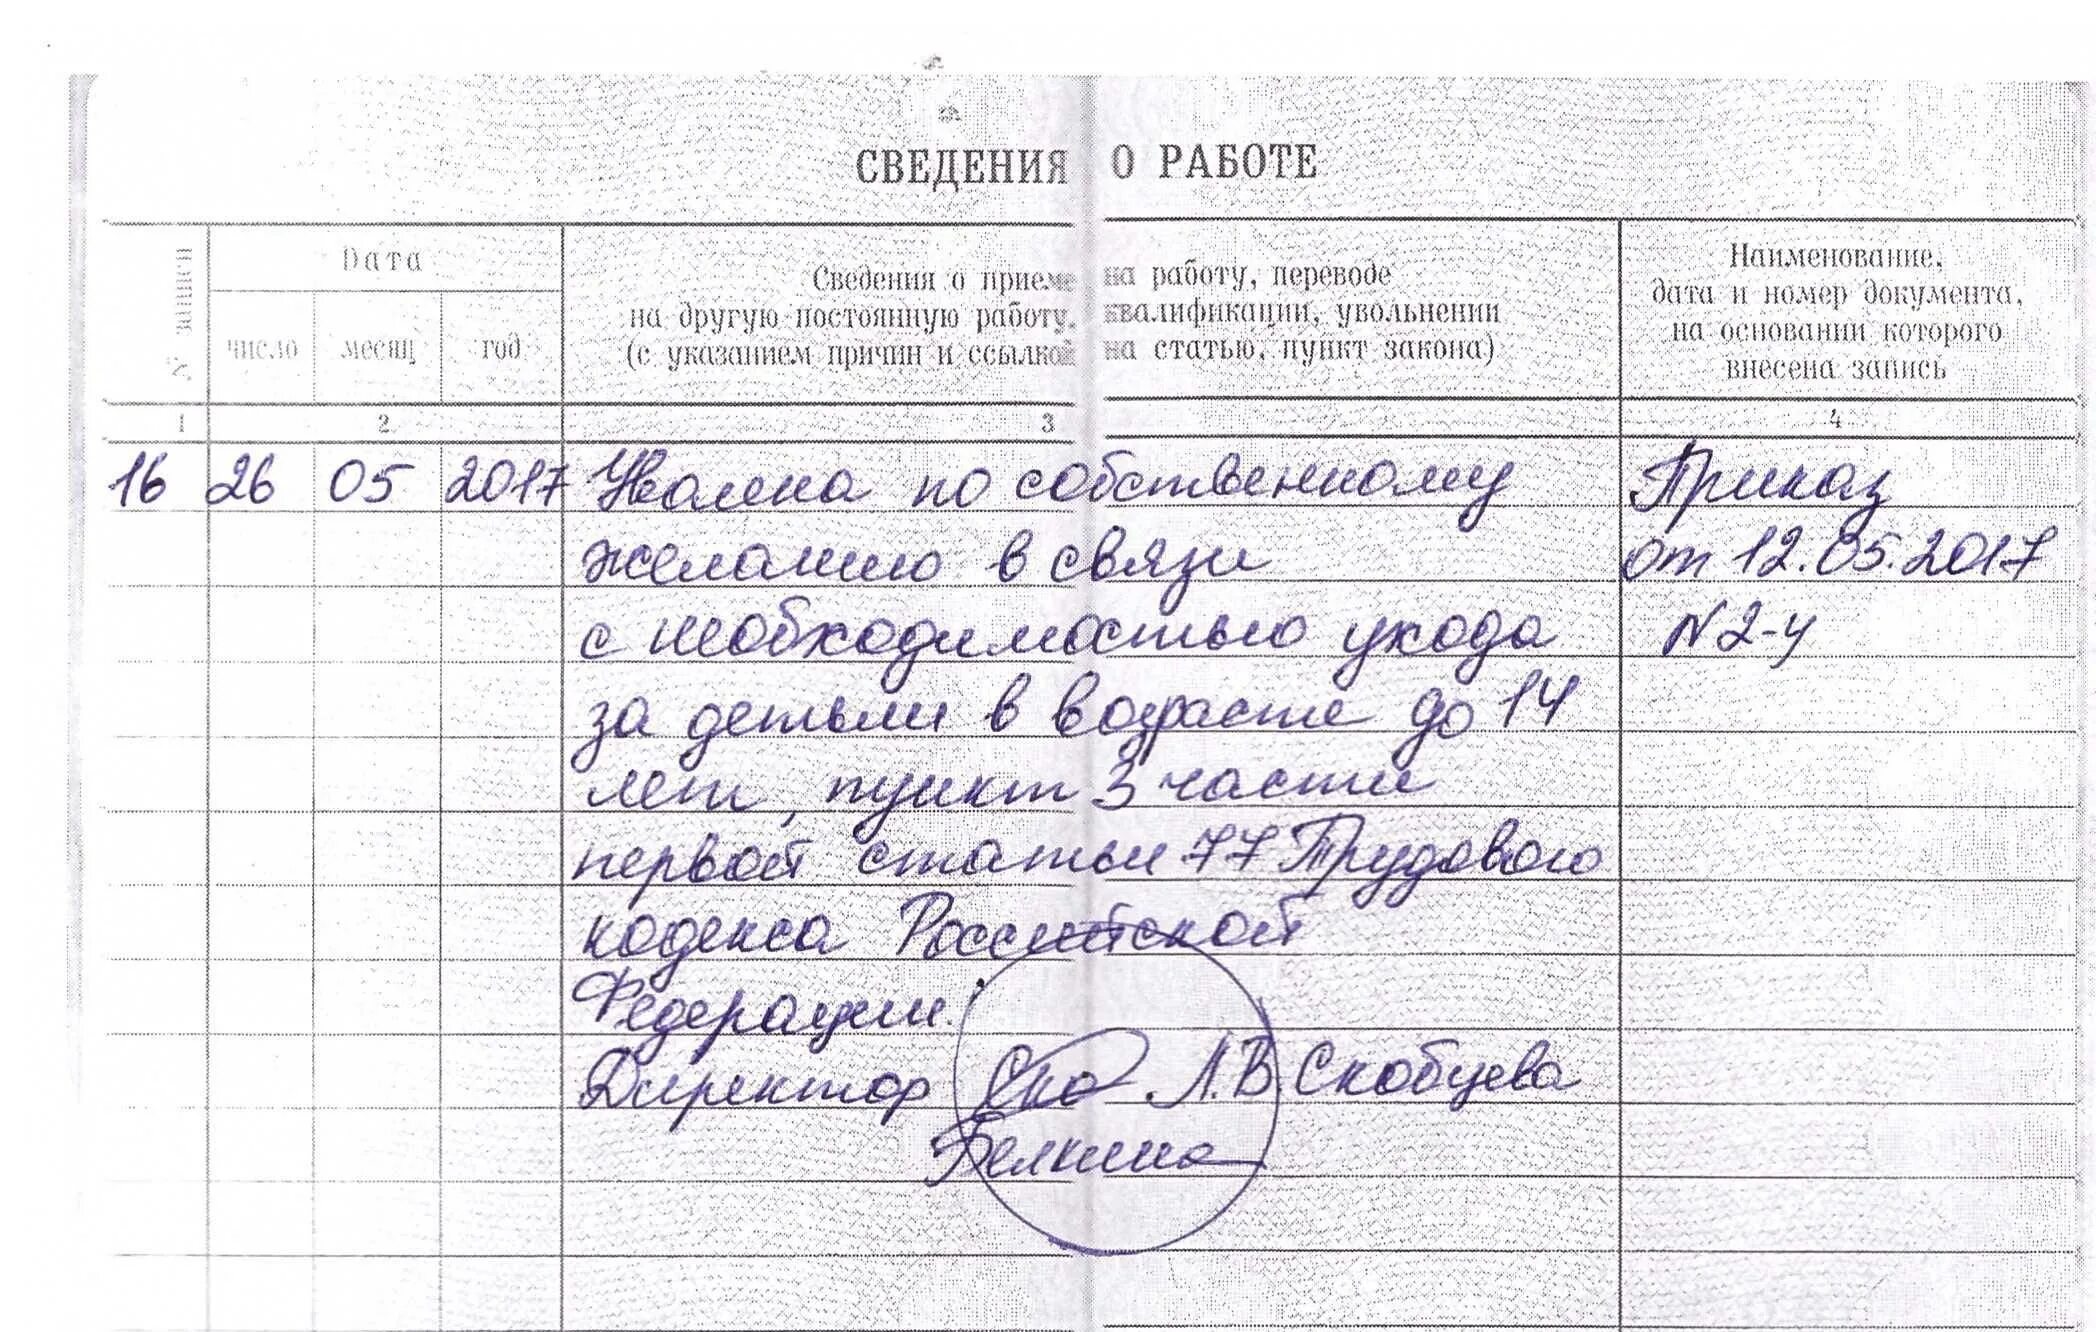 СВЕДЕНИЯ О РАБОТЕ
№ записи
Дата
число
месяц
год
Сведения о приеме на работу, переводе
на другую постоянную работу, квалификации, увольнении
(с указанием причин и ссылкой на статью, пункт закона)
Наименование,
дата и номер документа,
на основании которого
внесена запись
1 2 3 4
16 26 05 2017 Уволена по собственному Приказ
желанию в связи от 12.05.2017
с необходимостью ухода N2-у
за детьми в возрасте до 14
лет, пункт 3 части
первой статьи 77 Трудового
кодекса Российской
Федерации.
Директор Ско Л.В. Скобцева
Белкина